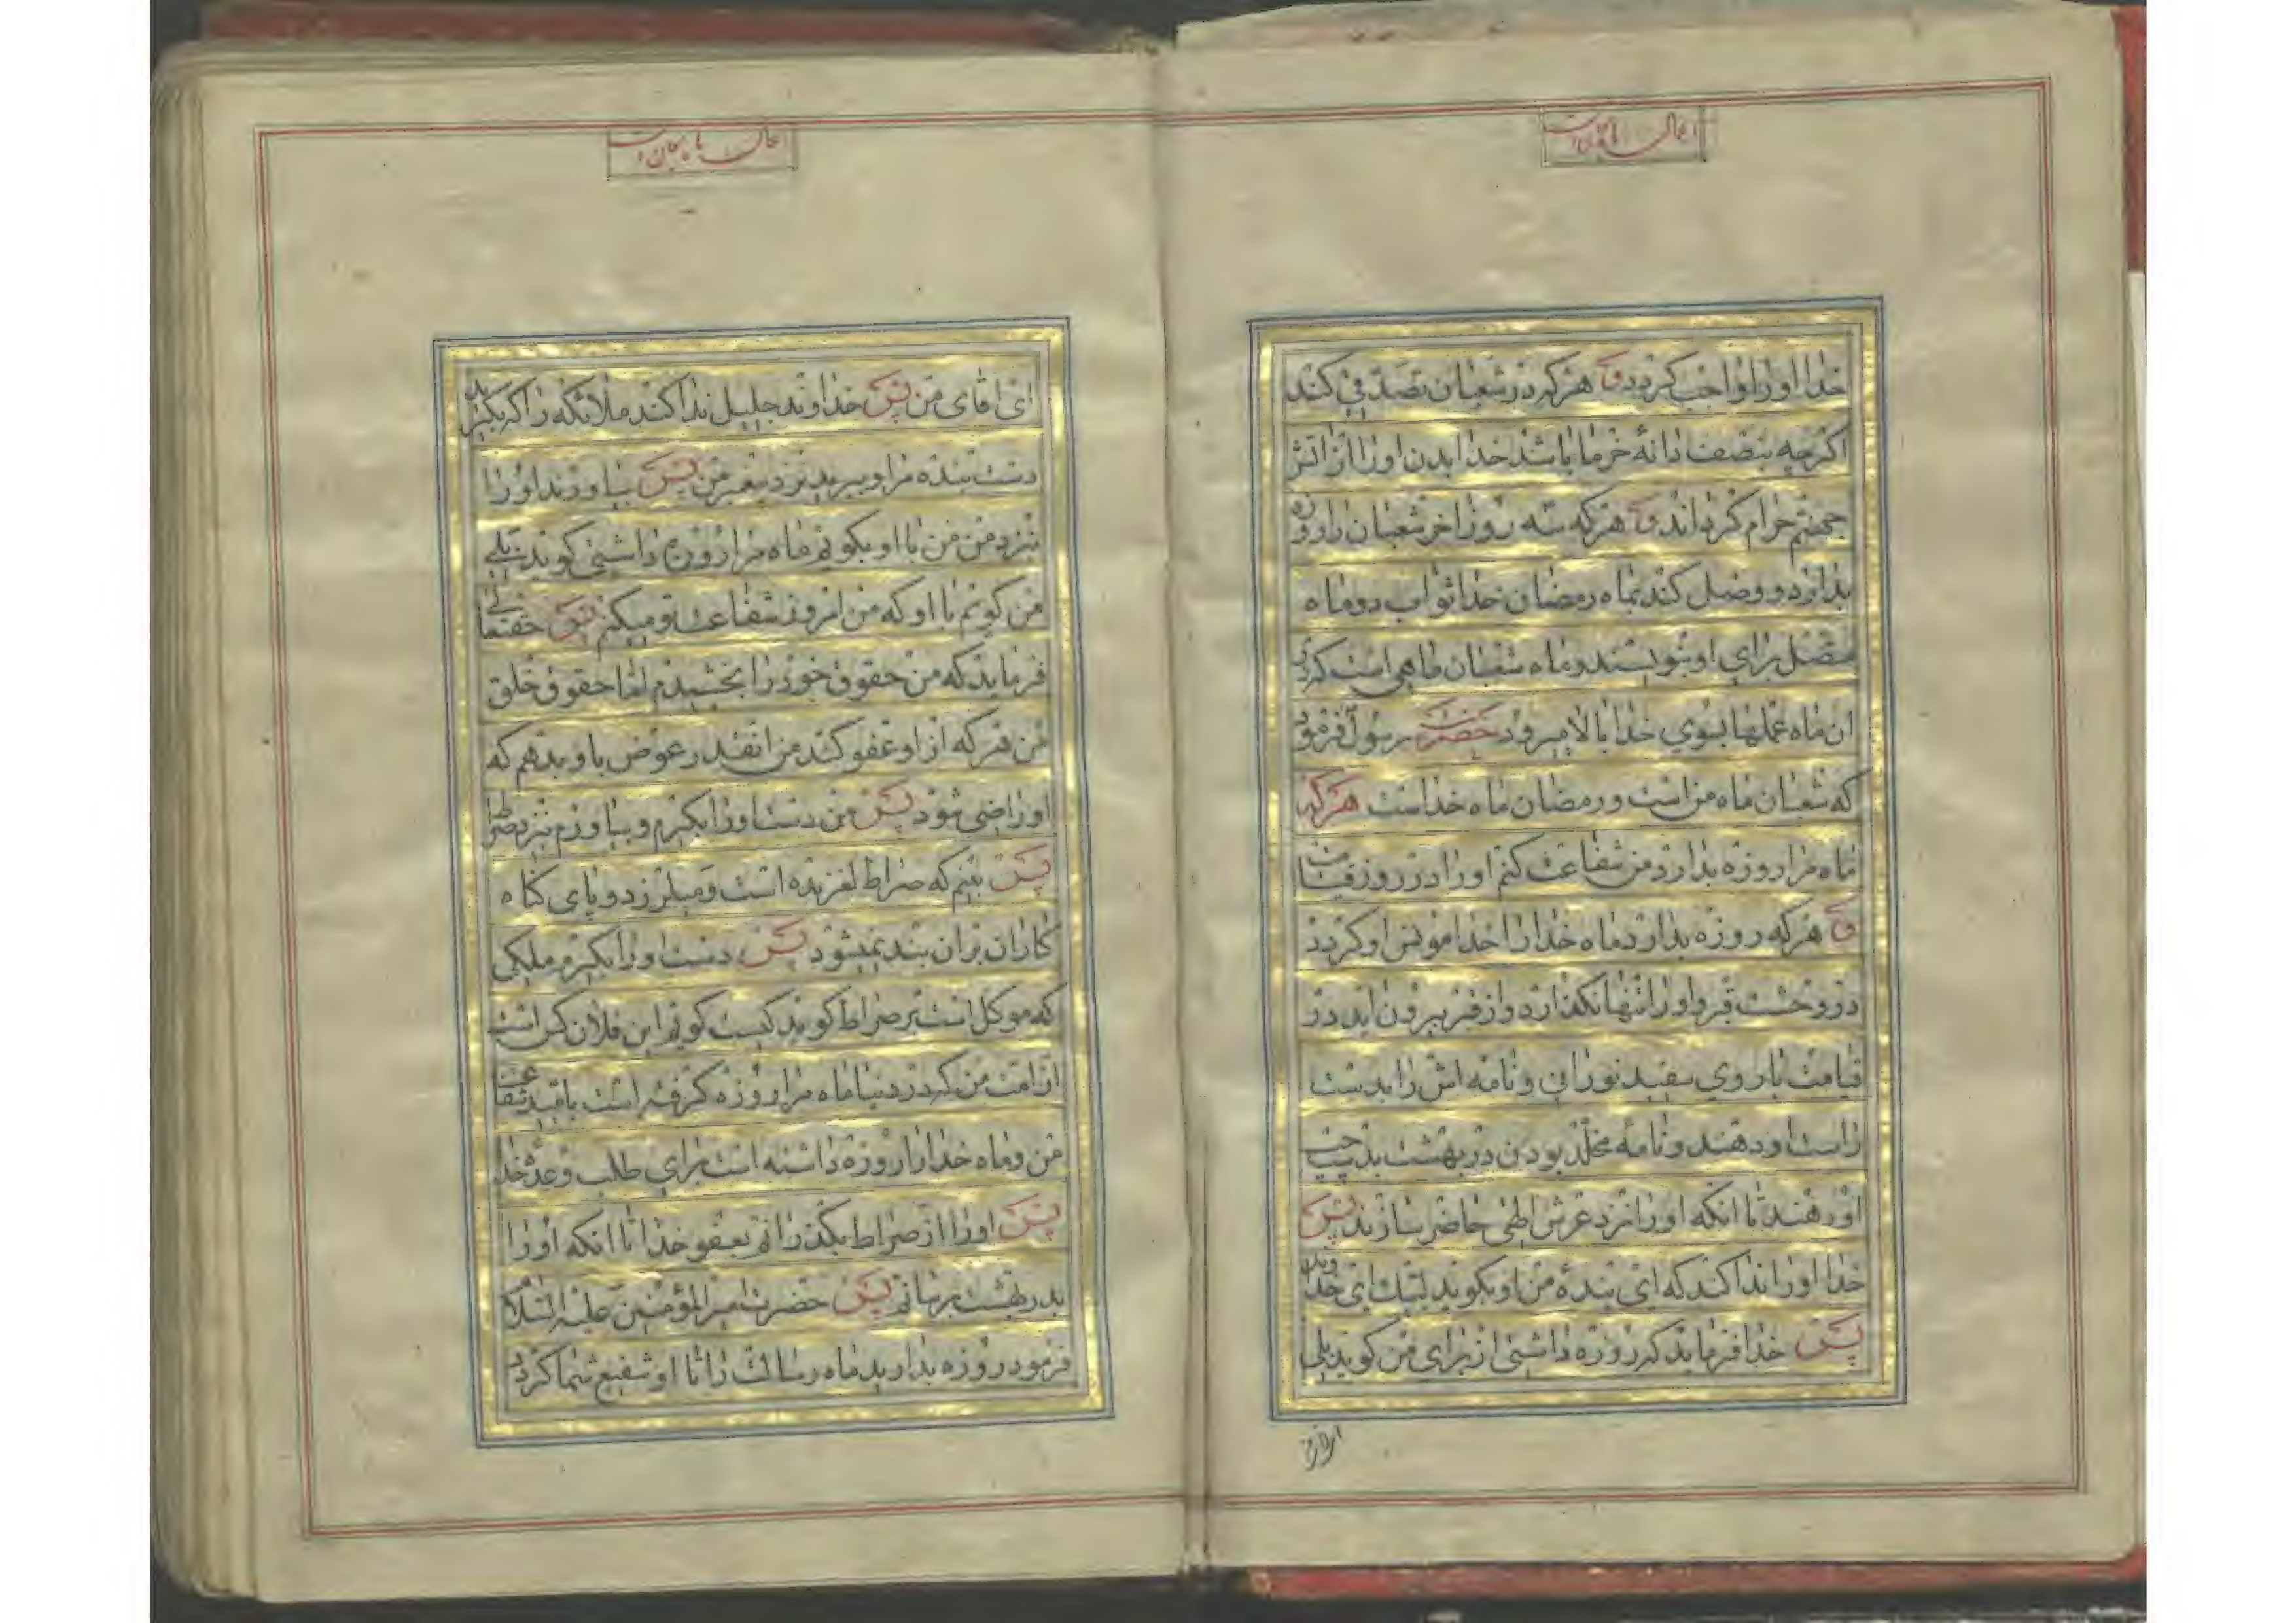 اعمال
خدا او را واجب گردد و هر که در شعبان تصدقی کند
اگر چه بنصف دانه خرما باشد خدا بدن او را از اتش
جهنم حرام گرداند و هر که سه روز اخر شعبان را روزه
بدارد و وصل کند بماه رمضان خدا ثواب دو ماه
متصل برای او بنویسند و ماه شعبان ماهی است که در
ان ماه عملها بسوی خدا بالا میرود حضرت رسول فرمود
که شعبان ماه من است و رمضان ماه خداست هر که
ماه مرا روزه بدارد من شفاعت کنم او را در روز قیامت
و هر که روزه بدارد ماه خدا را خدا مونس او گردد
در وحشت قبر و او را تنها نگذارد و از قبر بیرون اید در
قیامت با روی سفید نورانی و نامه اش را بدست
راست او دهند و نامه مخلد بودن در بهشت بدست چپ
او دهند تا انکه او را نزد عرش الهی حاضر سازند پس
خدا او را ندا کند که ای بنده من او بگوید لبیک ای خداوند
پس خدا فرماید که روزه داشتی از برای من گوید بلی
ای اقای
اعمال ماه شعبان
ای اقای من پس خداوند جلیل ندا کند ملائکه را که بگیرید
دست بنده مرا و ببرید نزد پیغمبر من پس بیاورند او را
بنزد من من با او بگویم ماه مرا روزه داشتی گوید بلی
من گویم با او که من امروز شفاعت تو میکنم پس حقتعالی
فرماید که من حقوق خود را بخشیدم اما حقوق خلق
من هر که از او عفو کند من انقدر عوض باو بدهم که
او راضی شود پس من دست او را بگیرم و بیاورم بنزد صراط
پس بینم که صراط لغزیده است و میلرزد و پای گناه
کاران بران بند نمیشود پس دست او را بگیرم ملکی
که موکل است بر صراط گوید کیست گویم این فلان کس است
از امت من که در دنیا ماه مرا روزه گرفته است بامید شفاعت
من و ماه خدا را روزه داشته است برای طلب وعده خدا
پس او را از صراط بگذرانم بعفو خدا تا انکه او را
بدر بهشت برسانم پس حضرت امیرالمؤمنین علیه السلام
فرمود روزه بدارید ماه رسالت را تا او شفیع شما گردد